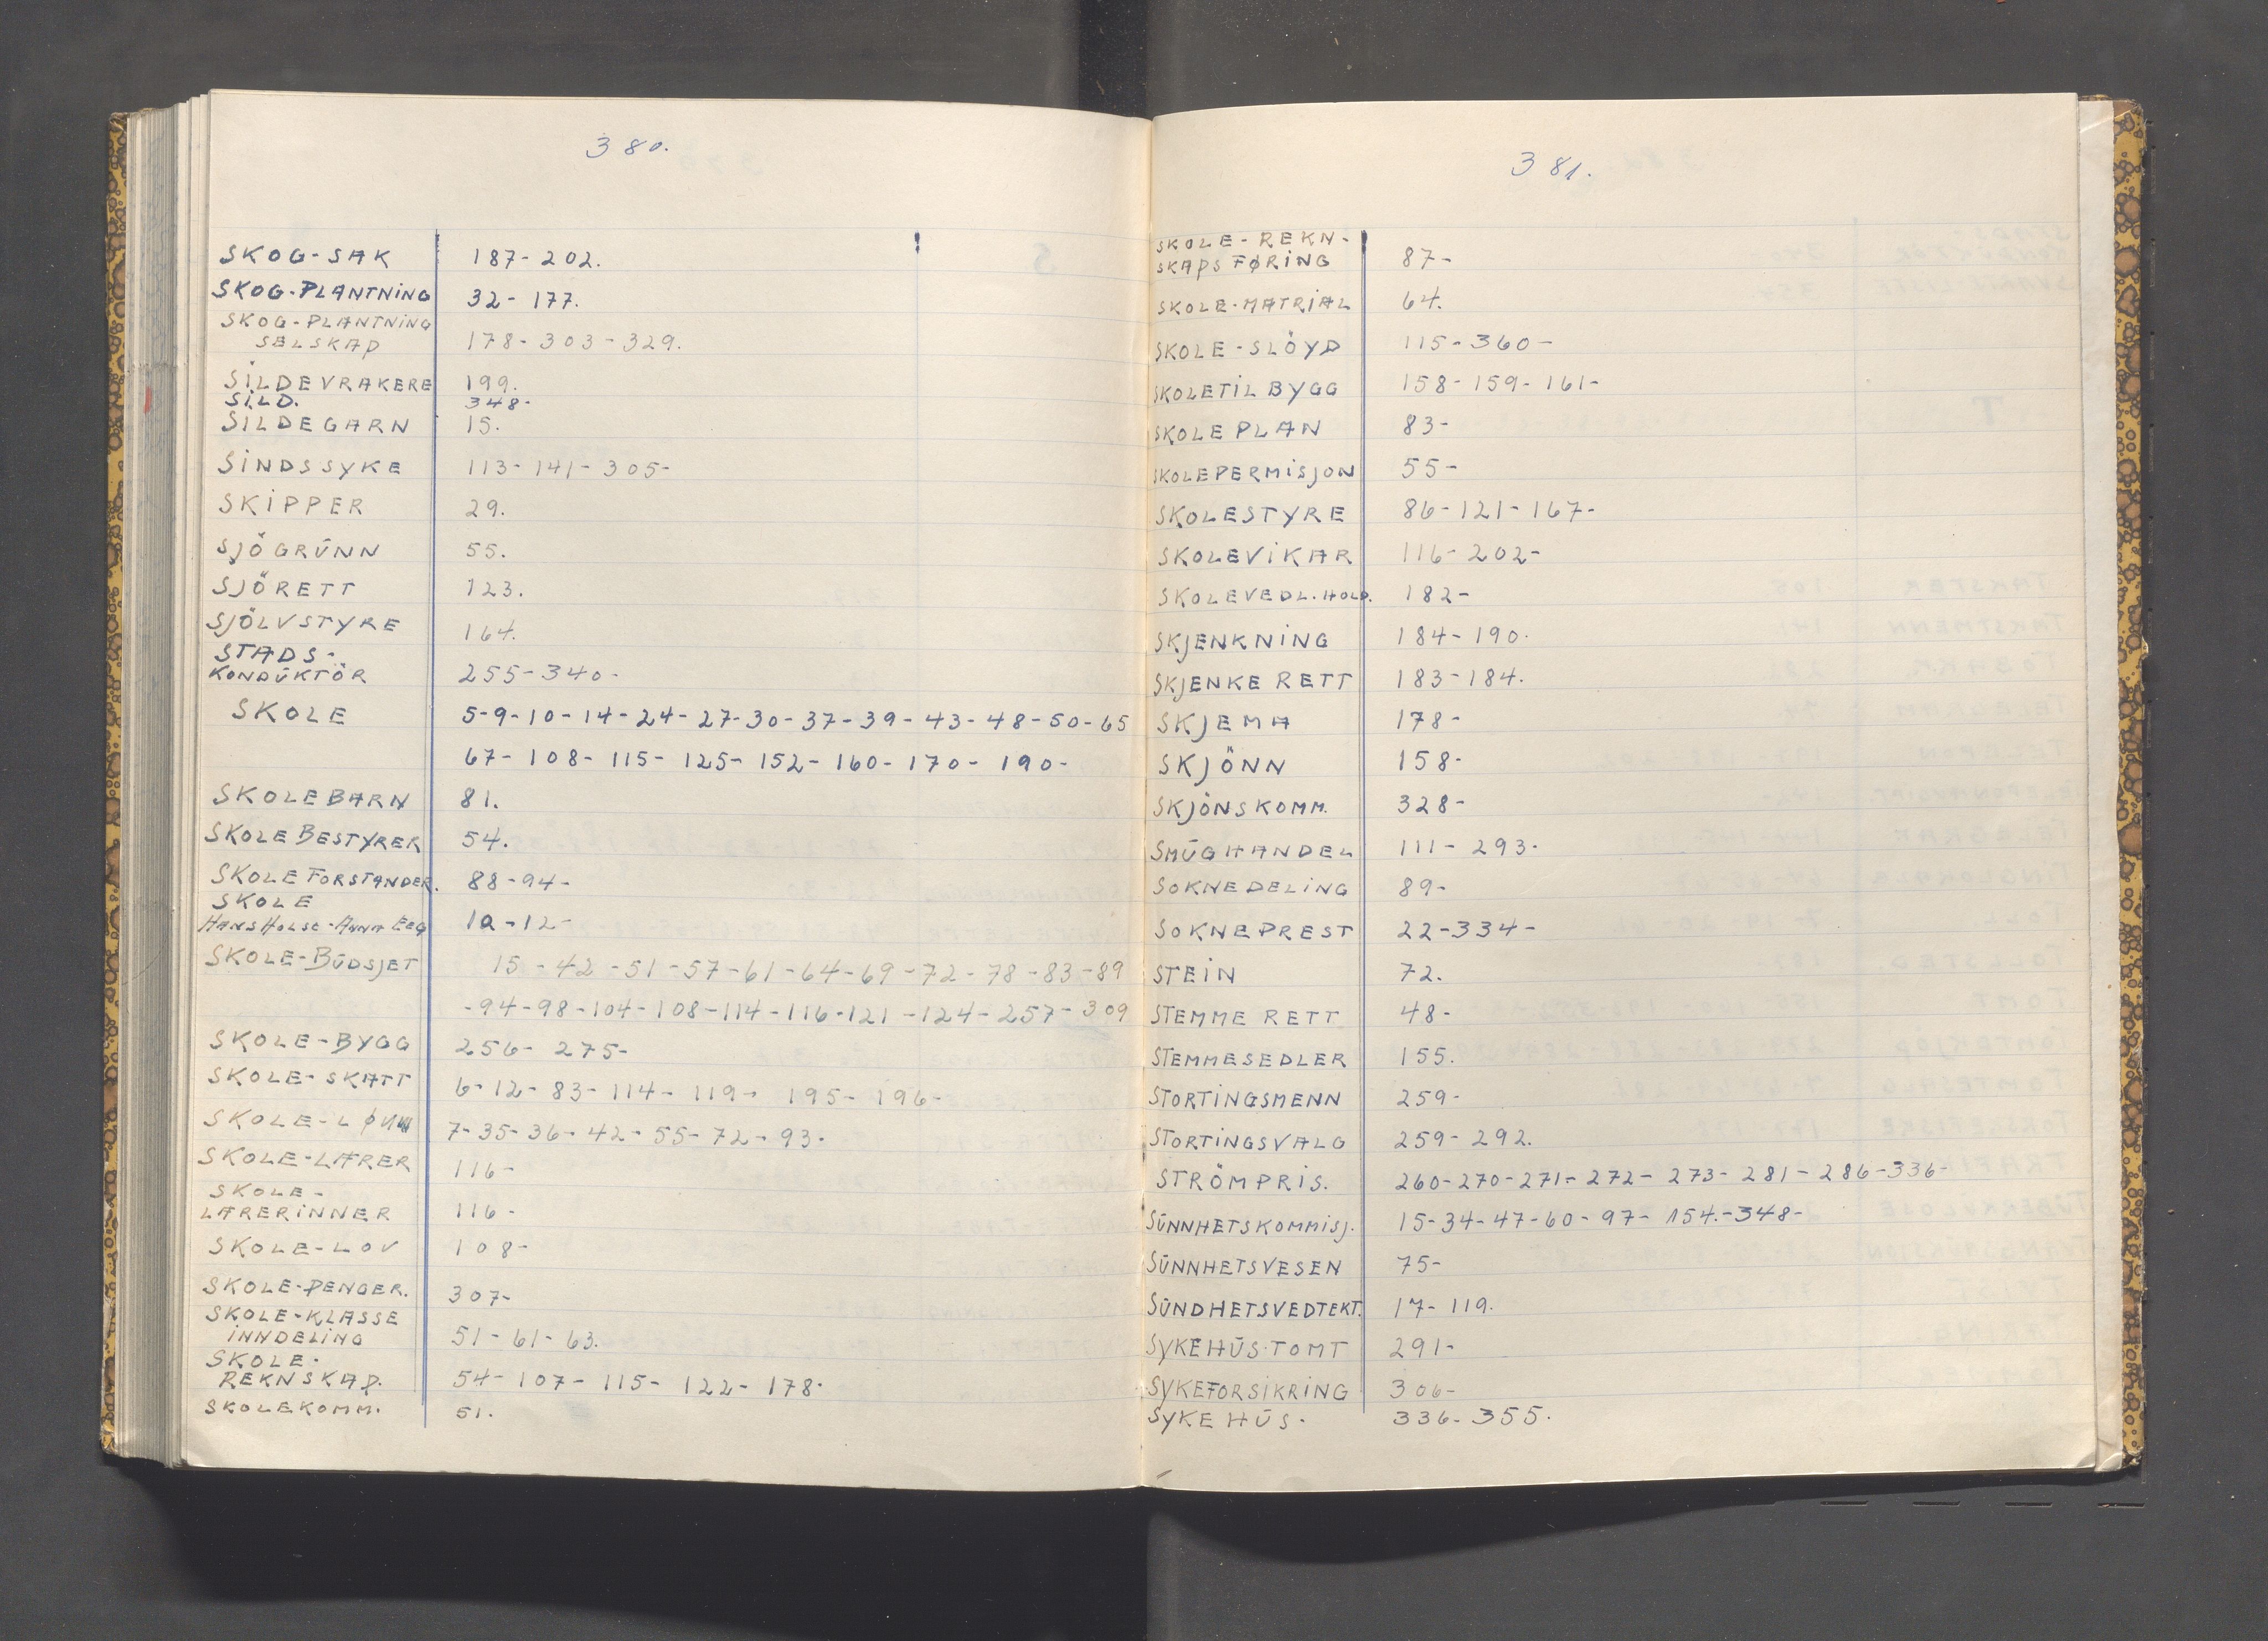 380.
SKOG-SAK 187-202.
SKOG-PLANTNING 32-177.
SKOG-PLANTNING
SELSKAP 178-303-329.
SILDEVRAKERE 199.
SILD. 348-
SILDEGARN 15.
SINDSSYKE 113-141-305-
SKIPPER 29.
SJÖGRŪNN 55.
SJÖRETT 123.
SJÖLVSTYRE 164.
STADS-
KONDŪKTÖR 255-340-
SKOLE 5-9-10-14-24-27-30-37-39-43-48-50-65
67-108-115-125-152-160-170-190-
SKOLEBARN 81.
SKOLE BESTYRER 54.
SKOLE FORSTANDER. 88-94-
SKOLE
HANS HOLST-ANNA EEG 10-12-
SKOLE-BŪDSJET 15-42-51-57-61-64-69-72-78-83-89
-94-98-104-108-114-116-121-124-257-309
SKOLE-BYGG 256-275-
SKOLE-SKATT 6-12-83-114-119-195-196-
SKOLE-LØNN 7-35-36-42-55-72-93.
SKOLE-LÆRER 116-
SKOLE-
LÆRERINNER 116-
SKOLE-LOV 108-
SKOLE-PENGER. 307-
SKOLE-KLASSE
INNDELING 51-61-63.
SKOLE-
REKNSKAP. 54-107-115-122-178.
SKOLEKOMM. 51.
381.
SKOLE-REKN-
SKAPSFØRING 87-
SKOLE-MATRIAL 64.
SKOLE-SLÖYD 115-360-
SKOLETILBYGG 158-159-161-
SKOLEPLAN 83-
SKOLEPERMISJON 55-
SKOLESTYRE 86-121-167-
SKOLEVIKAR 116-202-
SKOLEVEDL.HOLD. 182-
SKJENKNING 184-190.
SKJENKE RETT 183-184.
SKJEMA 178-
SKJÖNN 158-
SKJÖNSKOMM. 328-
SMŪGHANDEL 111-293.
SOKNEDELING 89-
SOKNEPREST 22-334-
STEIN 72.
STEMME RETT 48-
STEMMESEDLER 155.
STORTINGSMENN 259-
STORTINGSVALG 259-292.
STRÖMPRIS. 260-270-271-272-273-281-286-336-
SŪNNHETSKOMMISJ. 15-34-47-60-97-154.-348-
SŪNNHETSVESEN 75-
SŪNDHETSVEDTEKT. 17-119.
SYKEHŪS-TOMT 291-
SYKEFORSIKRING 306-
SYKEHŪS. 336-355.